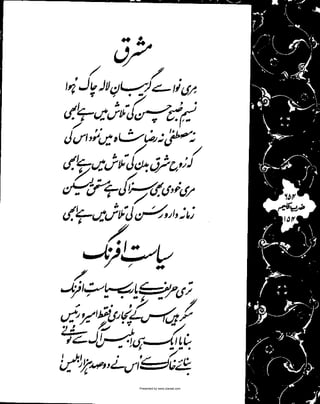 مشرق
مری نوا سے گریبانِ لالہ چاک ہوا
نسیمِ صبح چمن کی تلاش میں ہے ابھی
نہ مصطفیٰ نہ رضا شاہ میں نمود اس کی
کہ روحِ شرق بدن کی تلاش میں ہے ابھی
مری خودی بھی سزا کی ہے مستحق لیکن
زمانہ دار و رسن کی تلاش میں ہے ابھی
سیاستِ افرنگ
تری حریف ہے یارب سیاستِ افرنگ
مگر ہیں اس کے پجاری فقط امیر و رئیس
بنایا ایک ہی ابلیس آگ سے تو نے
بنائے خاک سے اُس نے دو صد ہزار ابلیس!
۶۵۴
ضربِ کلیم
۱۵۴
Presented by www.ziaraat.com